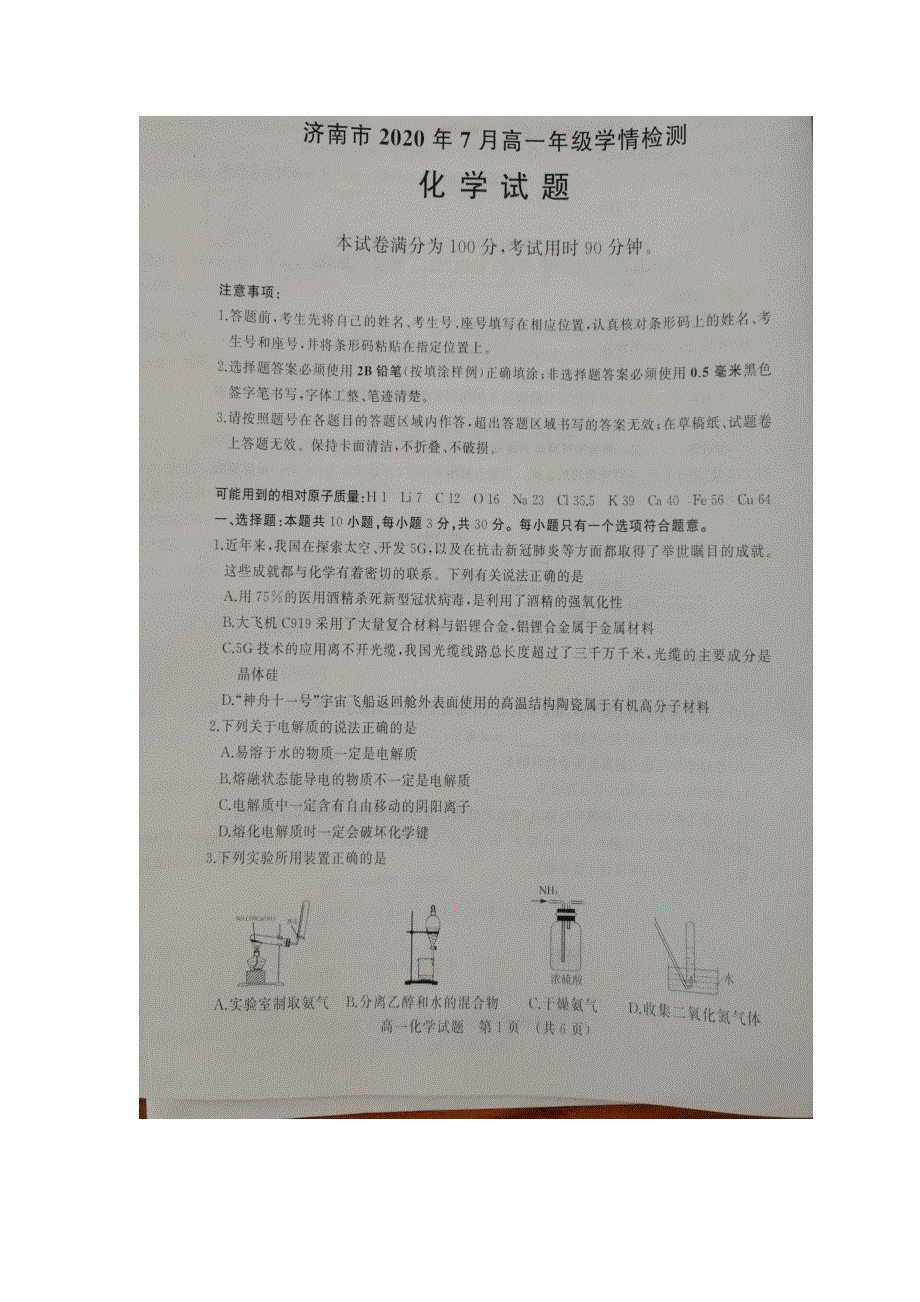 济南市 2020 年 7 月高一年级学情检测
化 学 试 题
本试卷满分为 100 分,考试用时 90 分钟。
注意事项:
1.答题前,考生先将自己的姓名、考生号、座号填写在相应位置,认真核对条形码上的姓名、考
生号和座号,并将条形码粘贴在指定位置上。
2.选择题答案必须使用 2B 铅笔(按填涂样例)正确填涂;非选择题答案必须使用 0.5 毫米黑色
签字笔书写,字体工整、笔迹清楚。
3.请按照题号在各题目的答题区域内作答,超出答题区域书写的答案无效;在草稿纸、试题卷
上答题无效。保持卡面清洁,不折叠、不破损。
可能用到的相对原子质量:H 1 Li 7 C 12 O 16 Na 23 Cl 35.5 K 39 Ca 40 Fe 56 Cu 64
一、选择题:本题共 10 小题,每小题 3 分,共 30 分。每小题只有一个选项符合题意。
1.近年来,我国在探索太空、开发 5G,以及在抗击新冠肺炎等方面都取得了举世瞩目的成就。
这些成就都与化学有着密切的联系。下列有关说法正确的是
A.用 75%的医用酒精杀死新型冠状病毒,是利用了酒精的强氧化性
B.大飞机 C919 采用了大量复合材料与铝锂合金,铝锂合金属于金属材料
C.5G 技术的应用离不开光缆,我国光缆线路总长度超过了三千万千米,光缆的主要成分是
晶体硅
D.“神舟十一号”宇宙飞船返回舱外表面使用的高温结构陶瓷属于有机高分子材料
2.下列关于电解质的说法正确的是
A.易溶于水的物质一定是电解质
B.熔融状态能导电的物质不一定是电解质
C.电解质中一定含有自由移动的阴阳离子
D.熔化电解质时一定会破坏化学键
3.下列实验所用装置正确的是
NH₃
浓硫酸
水
A.实验室制取氨气 B.分离乙醇和水的混合物 C.干燥氨气 D.收集二氧化氮气体
高一化学试题 第 1 页 (共 6 页)